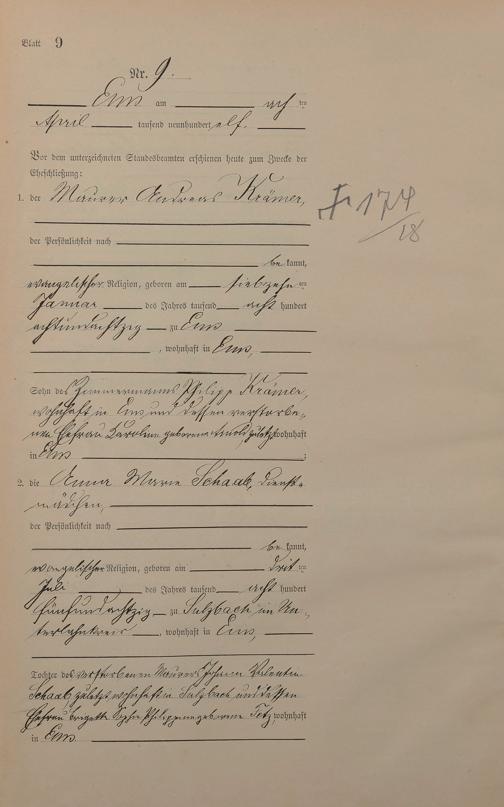 Blatt 9
Nr. 9.
Ems am acht ten
April tausend neunhundert elf.
Vor dem unterzeichneten Standesbeamten erschienen heute zum Zwecke der
Eheschließung:
1. der Maurer Andreas Krämer,
der Persönlichkeit nach
be kannt,
evangelischer Religion, geboren am siebzehn ten
Januar des Jahres tausend acht hundert
achtundachtzig zu Ems
, wohnhaft in Ems,
Sohn des Zimmermanns Philipp Krämer,
wohnhaft in Ems und dessen verstorbe-
nen Ehefrau Karoline geborene Arnold, zuletzt wohnhaft
in Ems ;
2. die Anna Marie Schaab, Dienst-
mädchen,
der Persönlichkeit nach
be kannt,
evangelischer Religion, geboren am drit ten
Juli des Jahres tausend acht hundert
fünfundachtzig zu Sulzbach im Un-
terlahnkreis, wohnhaft in Ems,
Tochter des verstorbenen Maurers Johann Valentin
Schaab, zuletzt wohnhaft in Sulzbach und dessen
Ehefrau Sophie Philippine geborene wohnhaft
in Ems.
174
/18